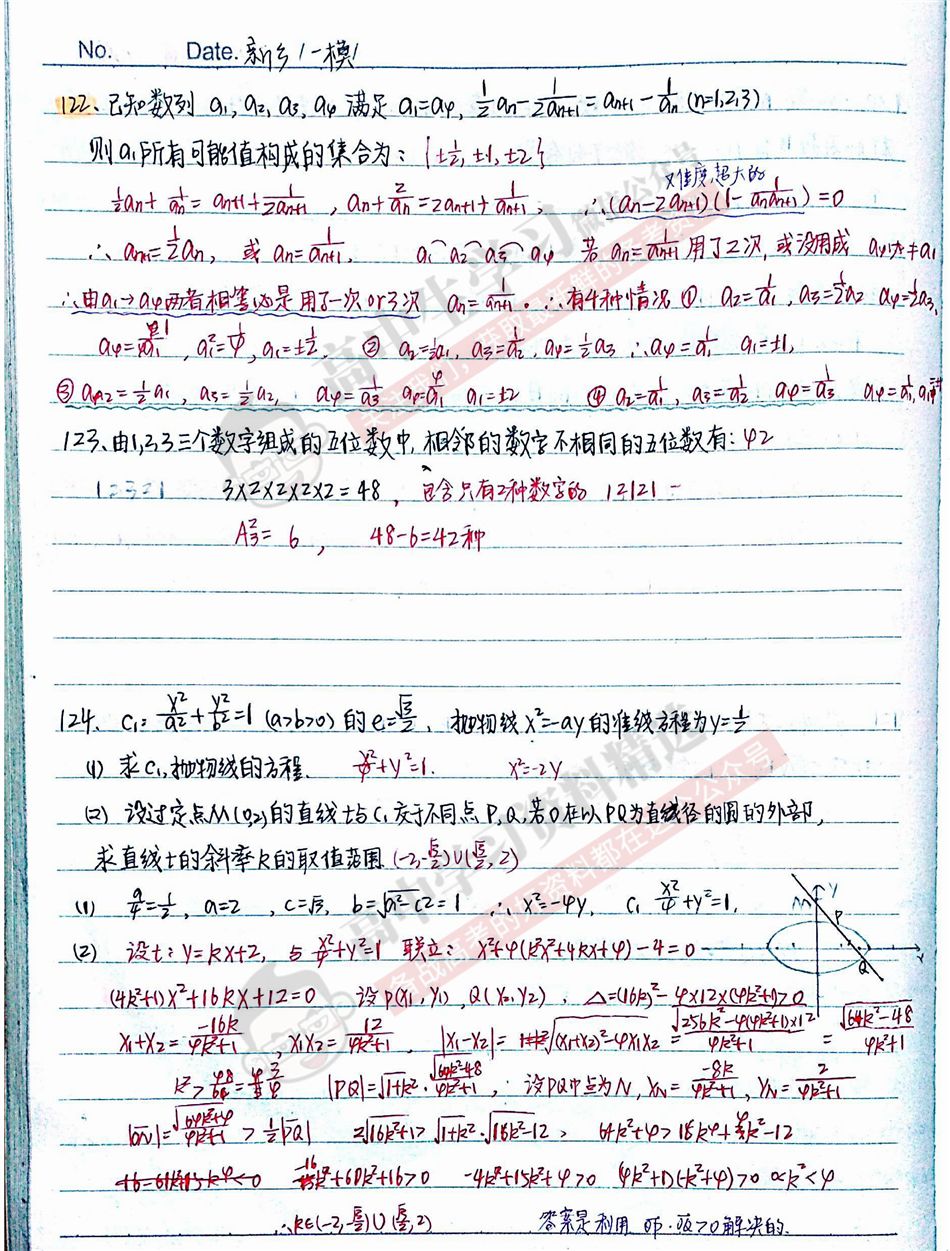 No. Date. 新乡/一模/
122、已知数列 a₁, a₂, a₃, a₄ 满足 a₁=a₄, ½aₙ-1/2aₙ₊₁=aₙ₊₁-1/aₙ (n=1,2,3)
则a₁所有可能值构成的集合为: {±½, ±1, ±2}
难度超大的
½aₙ+1/aₙ=aₙ₊₁+1/2aₙ₊₁, aₙ+2/aₙ=2aₙ₊₁+1/aₙ₊₁, ∴(aₙ-2aₙ₊₁)(1-1/aₙaₙ₊₁)=0
∴aₙ₊₁=½aₙ, 或 aₙ=1/aₙ₊₁, a₁ a₂ a₃ a₄ 若 aₙ=1/aₙ₊₁用了2次, 或没用成 a₄≠a₁
∴由a₁→a₄两者相等必是用了一次or3次 aₙ=1/aₙ₊₁. ∴有4种情况 ①. a₂=1/a₁, a₃=½a₂ a₄=½a₃,
a₁²=¼, a₁=±½. ② a₂=½a₁, a₃=1/a₂, a₄=½a₃ ∴a₄=1/a₁ a₁=±1,
③ a₂=½a₁, a₃=½a₂, a₄=1/a₃ a₄=4/a₁ a₁=±2 ④ a₂=1/a₁, a₃=1/a₂ a₄=1/a₃ a₄=1/a₁,
123、由1,2,3三个数字组成的五位数中, 相邻的数字不相同的五位数有: 42
12321 3×2×2×2×2=48, 包含只有2种数字的 12121
A₃²=6, 48-6=42种
124、C₁: x²/a²+y²/b²=1 (a>b>0) 的e=√3/2, 抛物线x²=-ay的准线方程为y=½
(1) 求C₁,抛物线的方程. x²/4+y²=1. x²=-2y
(2) 设过定点M(0,2)的直线t与C₁交于不同点P,Q,若O在以PQ为直径的圆的外部,
求直线t的斜率k的取值范围 (-2,-√3/2)∪(√3/2,2)
(1) a/4=½, a=2, c=√3, b=√a²-c²=1 ∴x²=-4y, C₁ x²/4+y²=1.
M y P Q x
(2) 设t: y=kx+2, 与 x²/4+y²=1 联立: x²+4(k²x²+4kx+4)-4=0
(4k²+1)x²+16kx+12=0 设P(x₁,y₁),Q(x₂,y₂), △=(16k)²-4×12×(4k²+1)>0
x₁+x₂=-16k/4k²+1, x₁x₂=12/4k²+1, |x₁-x₂|=√(x₁+x₂)²-4x₁x₂=√256k²-4(4k²+1)×12/4k²+1=√64k²-48/4k²+1
k²>48/64=3/4 |PQ|=√1+k²·√64k²-48/4k²+1, 设PQ中点为N, xN=-8k/4k²+1, yN=2/4k²+1
|ON|=√64k²+4/4k²+1>½|PQ| 2√16k²+1>√1+k²·√16k²-12, 64k²+4>16k⁴+4k²-12
-16k⁴+60k²+16>0 -4k⁴+15k²+4>0 (4k²+1)(-k²+4)>0 k²<4
∴k∈(-2,-√3/2)∪(√3/2,2) 答案是利用 OP·OQ>0解决的.
高中生学习
微信公众号
高中学习资料精选